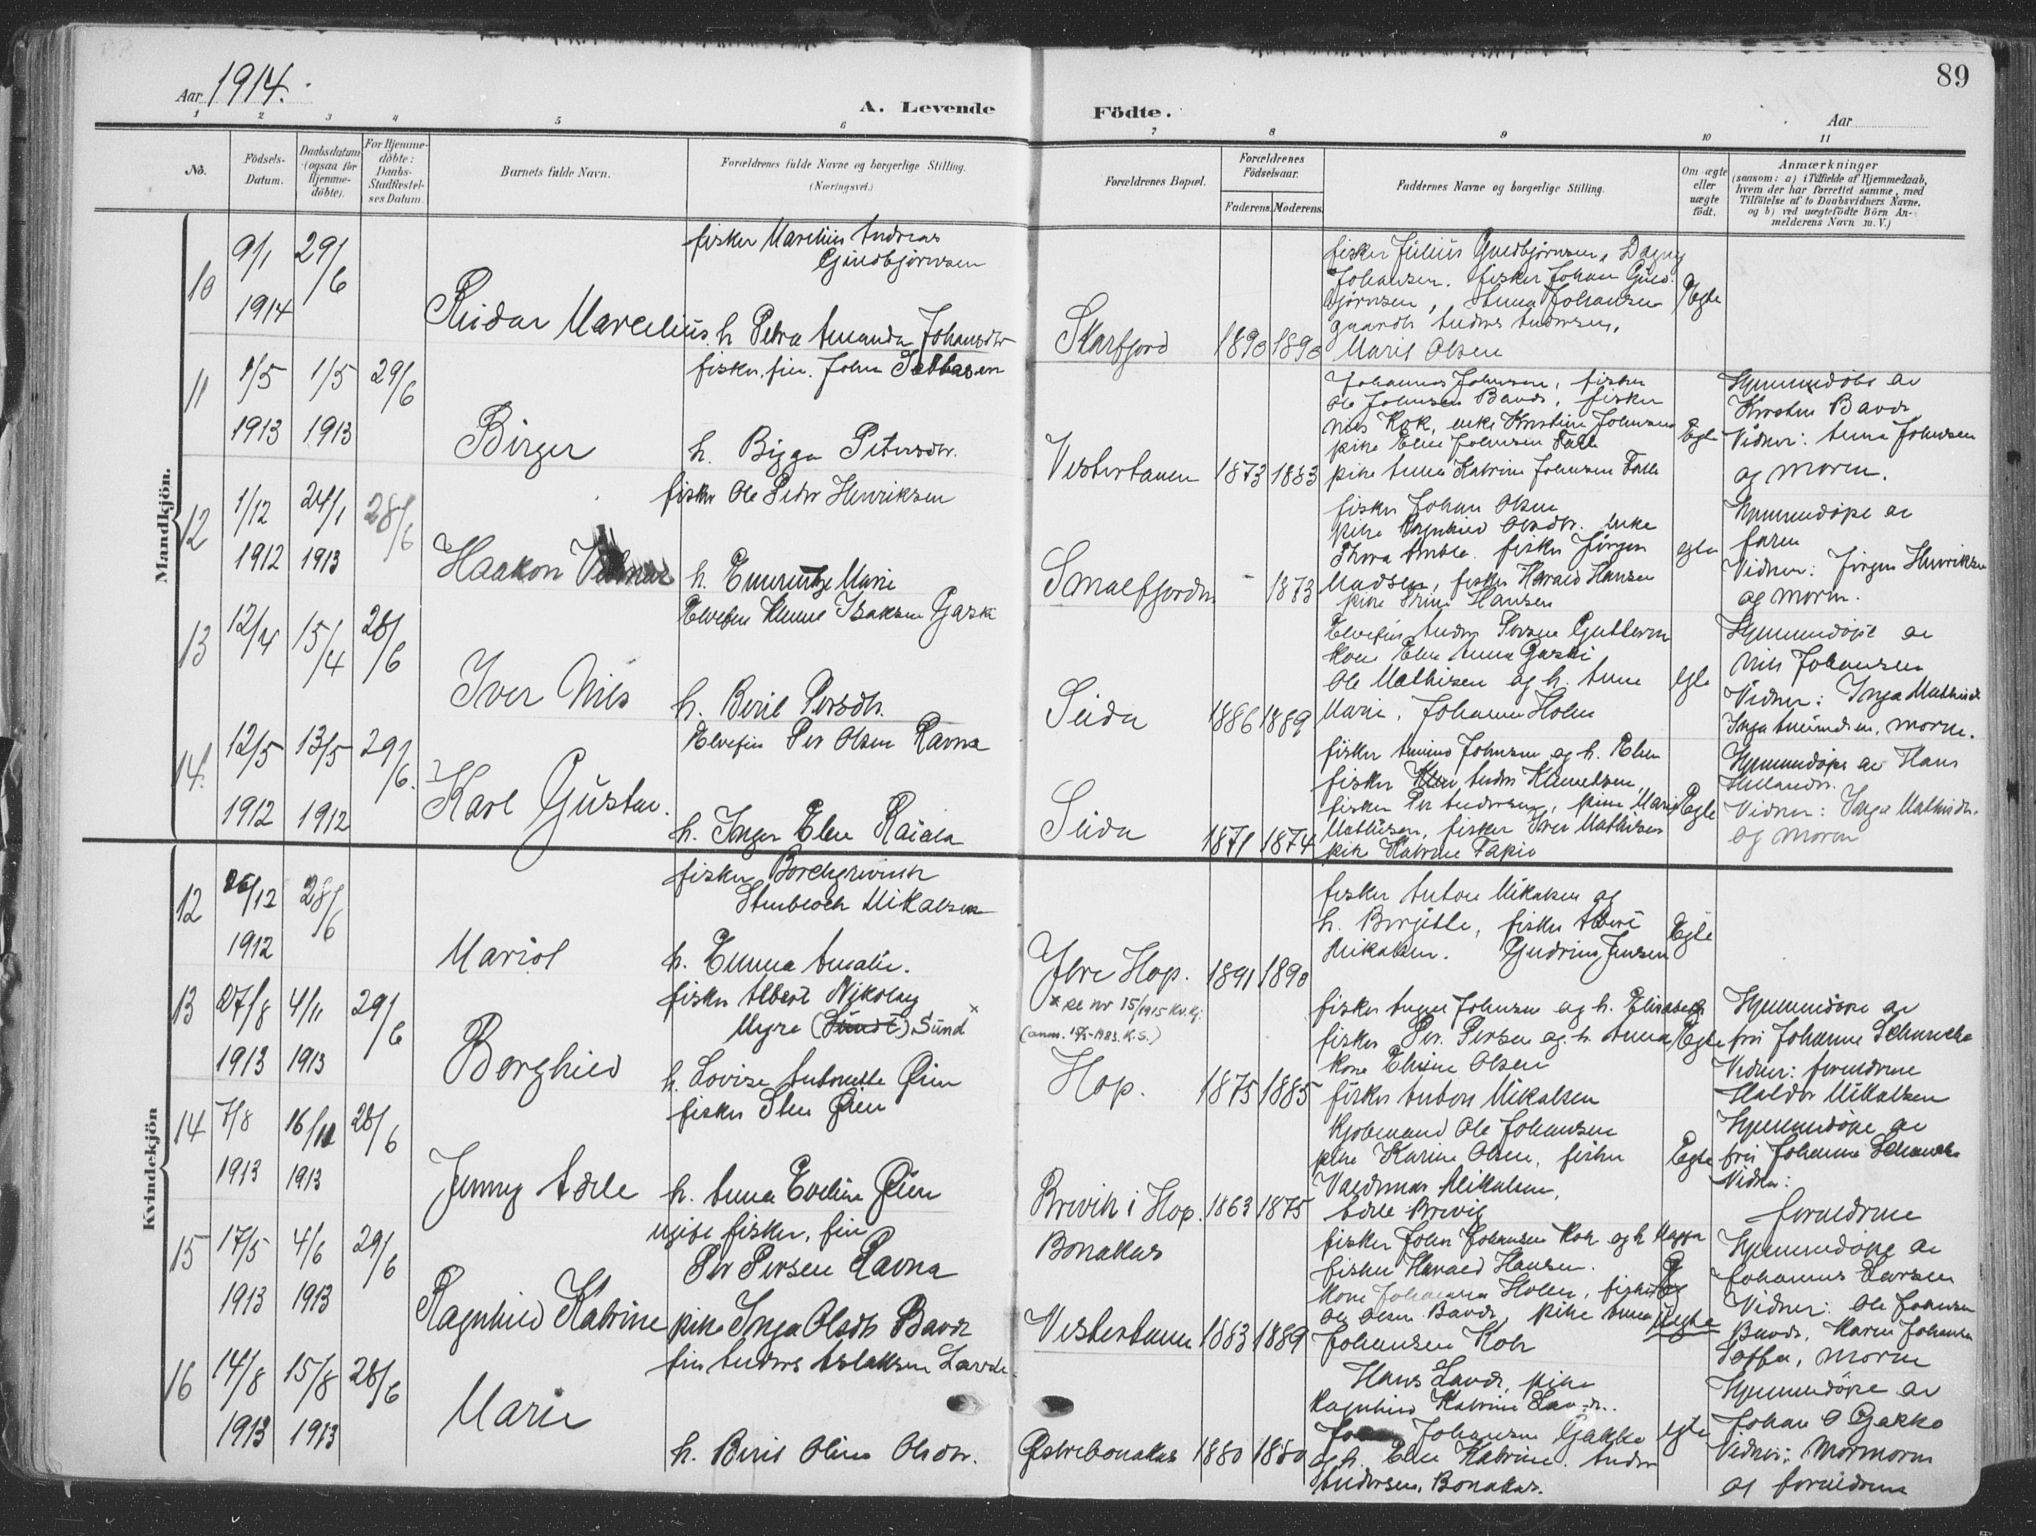 89
Aar 1914.
A. Levende Födte.
Aar
1 2 3 4 5 6 7 8 9 10 11
No.
Födsels-Datum.
Daabsdatum (ogsaa for Hjemme-döbte).
For Hjemme-döbte: Daabs-Stadfæstel-ses Datum.
Barnets fulde Navn.
Forældrenes fulde Navne og borgerlige Stilling. (Næringsvei.)
Forældrenes Bopæl.
Forældrenes Födselsaar.
Faderens. Moderens.
Faddernes Navne og borgerlige Stilling.
Om ægte eller uægte födt.
Anmærkninger
(saasom: a) i Tilfælde af Hjemmedaab,
hvem der har forrettet samme, med
Tilföielse af to Daabsvidners Navne,
og b) ved uægtefödte Börn An-
melderens Navn m. V.)
Mandkjön.
10
9/1 1914
29/6
Reidar Marcelius
fisker Marelius Andreas
Guldbjørnsen
h. Petra Amanda Johansdtr
Skarfjord
1890 1890
fisker Julius Guldbjørnsen, Dagny
Johansen. fisker Johan Guld-
bjørnsen, Anna Johansen
gaardb. Anders Andersen,
Marit Olsen
Ægte
11
1/5 1913
1/5 1913
29/6
Birger
fisker, fin. John
h. Bigga Petersdtr.
Vestertanen
1873 1883
Johannes Johnsen, fisker
Ole Johnsen Bavds, fisker
Nils Kok, enke Kristine Johnsen
pike Elen Johnsen
pike Anna Katrine Johnsen
Ægte
Hjemmedøbt av
Kirsten Bavds
Vidner: Anna Johnsen
og moren.
12
1/12 1912
24/1 1913
28/6
Haakon
fisker Ole Peder Henriksen
h. Emerentze Marie
Smalfjorden
- 1873
fisker Johan Olsen
pike Ragnhild Olsdtr. enke
Thora Amble. fisker Jørgen
Madsen, fisker Harald Hansen
pike Trine Hansen
egte
Hjemmedøpt av
faren
Vidner: Jørgen Henriksen
og moren.
13
12/4
15/4
28/6
Iver Nils
Elvefin Klemet Isaksen Gaski
h. Berit Persdtr.
Seida
1886 1889
Elvefin Anders Persen Guttorm
Kone Elen Anna Gaski
Ole Mathisen og h. Anne
Marie, Johanne Holm
egte
Hjemmedøpt av
Nils Johansen
Vidner: Inga Mathisd.
Inga Amundsen, moren.
14.
12/5 1912
13/5 1912
29/6.
Karl Gustav.
Elvefin Per Olsen Ravna
h. Inger Elen
Seida
1871 1874
fisker Amund Johnsen og h. Elen
fisker Anders Klemetsen,
fisker Per Andersen, pike Marie
Mathisen, fisker Iver Mathisen
pike Katrine Tapio
Ægte
Hjemmedøpt av Hans
Vidner: Inga Mathisdtr.
og moren
Kvindekjön
12
26/12 1912
28/6
Mariol
fisker Borchgrevink
Stenbock Mikalsen
h. Emma Amalie.
Ytre Hop.
1891 1890
fisker Anton Mikalsen og
h. Birgitte, fisker Albert
Mikalsen. Gudrun Jensen
Ægte
13
27/8 1913
4/11 1913
29/6
Borghild
fisker Albert Nikolay
Myre (Sundt) Sund x
h. Lovise Antonette Øien
x se nr 15/1915 kv.kj.
(anm. 19/5-1983. K.S.)
Hop.
1875 1885
fisker August Johnsen og h. Elisabeth
fisker Per Persen og h. Anna
Kone Elisine Olsen
fisker Anton Mikalsen
Ægte
Hjemmedøpt av
fru Johanne Schancke
Vidner: foreldrene
Haldor Mikalsen
14
7/8 1913
16/11 1913
28/6
Jenny Adele
fisker Sten Øien
h. Anna Eveline Øien
Brevik i Hop.
1863 1875
Kjøbmand Ole Johansen
pike Karine Olsen, fisker
Valdemar Mikalsen,
Adele Brevig
Ægte
Hjemmedøpt av
fru Johanne Schancke
Vidner:
foreldrene
15
17/5 1913
4/6 1913
29/6
Ragnhild Katrine
ugift fisker, fin
Per Persen Ravna
pike Inga Olsdtr Bavds
Bonakas
Vestertanen
1883 1889
fisker John Johansen Kok og h. Magga
fisker Harald Hansen.
Kone Johanna Holm, fisker
Ole Bavds, pike Anna
Johansen Kok
Uegte
Hjemmedøpt av
Johannes Larsen
Vidner: Ole Johnsen
Bavds, Karen Johansen
moren
16
14/8 1913
15/8 1913
28/6
Marie
fin Anders Aslaksen
h. Berit Oline Olsdtr.
Østrebonakas
1880 1880
Hans pike
Ragnhild Katrine
Johansen Gakko
og h. Elen Katrine. Anders
Andersen, Bonakas.
egte
Hjemmedøpt av
Johan O Gakko
Vidner: Mormoren
og foreldrene